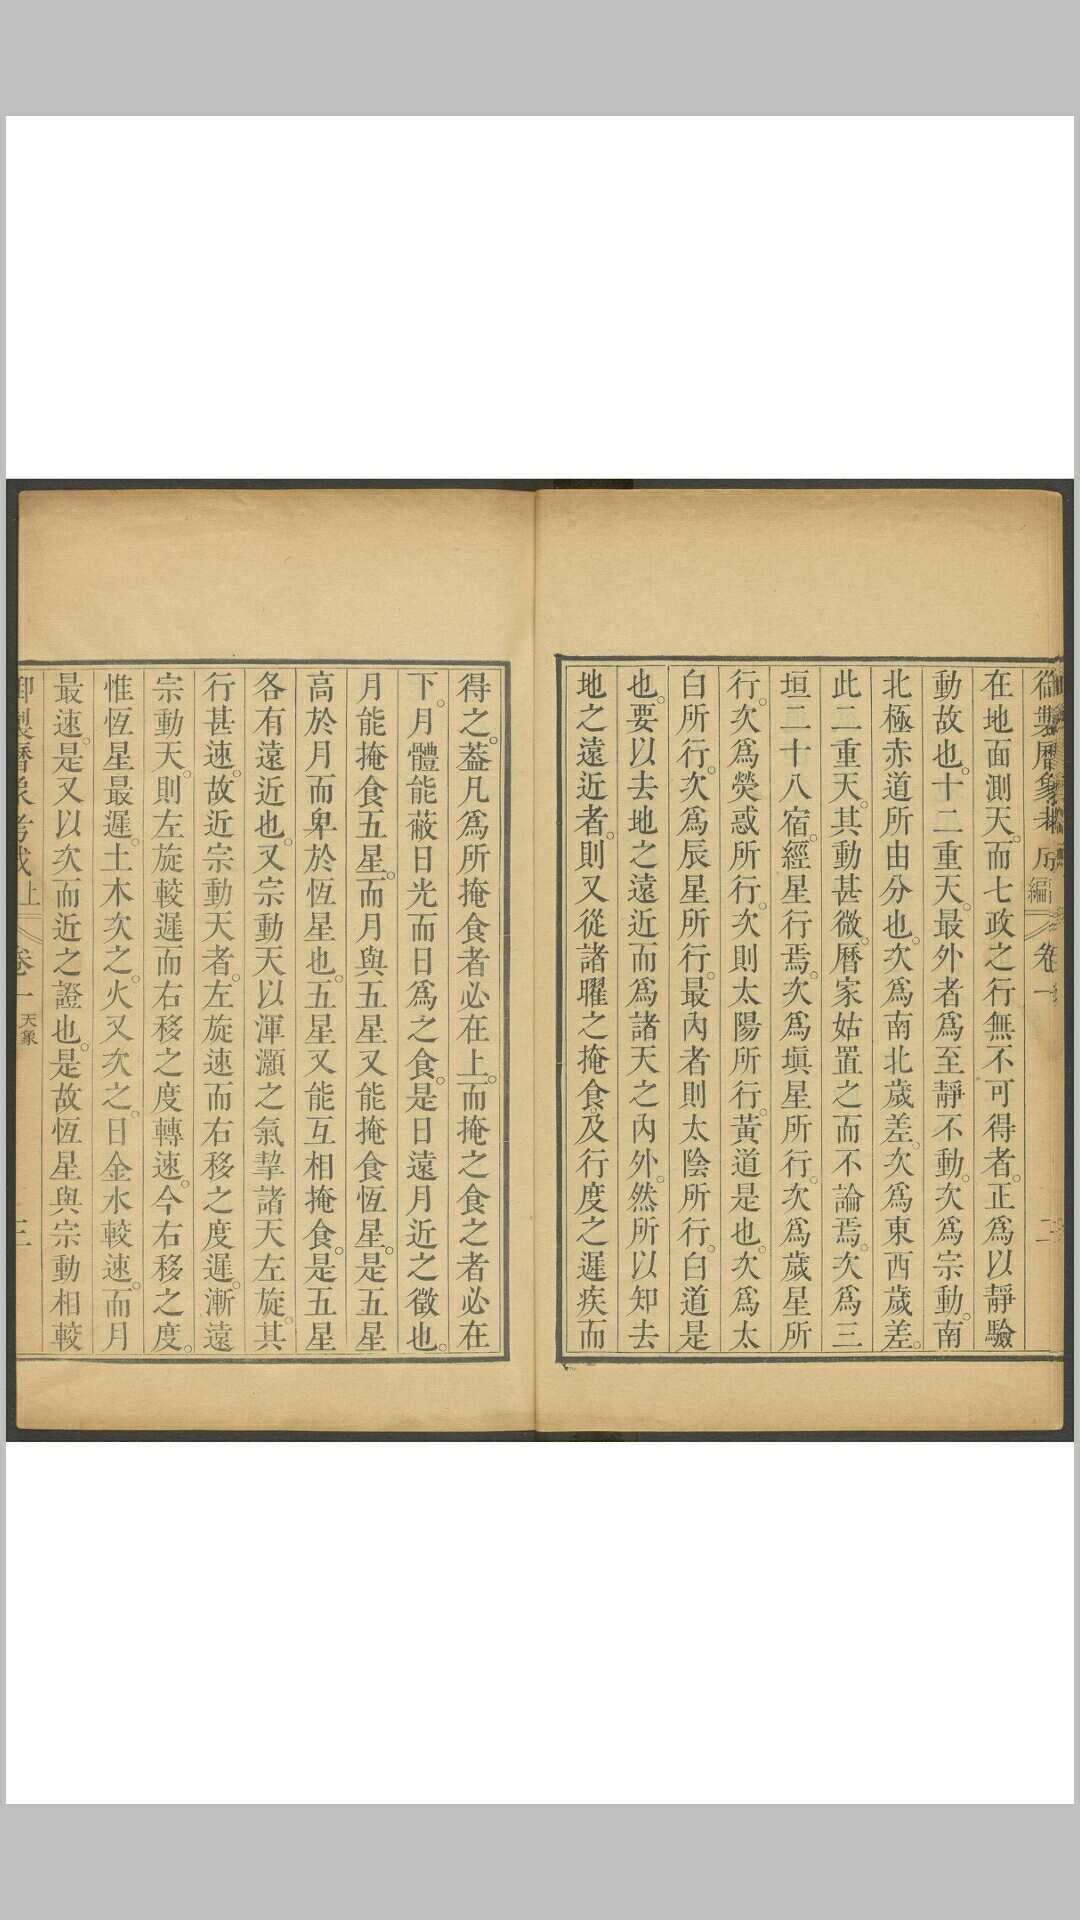 在地面測天。而七政之行無不可得者。正爲以靜驗
動故也。十二重天。最外者爲至靜不動。次爲宗動。南
北極赤道所由分也。次爲南北歲差。次爲東西歲差。
此二重天。其動甚微。曆家姑置之而不論焉。次爲三
垣二十八宿。經星行焉。次爲塡星所行。次爲歲星所
行。次爲熒惑所行。次則太陽所行。黃道是也。次爲太
白所行。次爲辰星所行。最內者則太陰所行。白道是
也。要以去地之遠近而爲諸天之內外。然所以知去
地之遠近者。則又從諸曜之掩食。及行度之遲疾而
得之。葢凡爲所掩食者必在上。而掩之食之者必在
下。月體能蔽日光而日爲之食。是日遠月近之徵也。
月能掩食五星。而月與五星又能掩食恆星。是五星
高於月而卑於恆星也。五星又能互相掩食。是五星
各有遠近也。又宗動天以渾灝之氣挈諸天左旋。其
行甚速。故近宗動天者。左旋速而右移之度遲。漸遠
宗動天。則左旋較遲而右移之度轉速。今右移之度。
惟恆星最遲。土木次之。火又次之。日金水較速。而月
最速。是又以次而近之證也。是故恆星與宗動相較
御製曆象考成上 卷一 天象 三